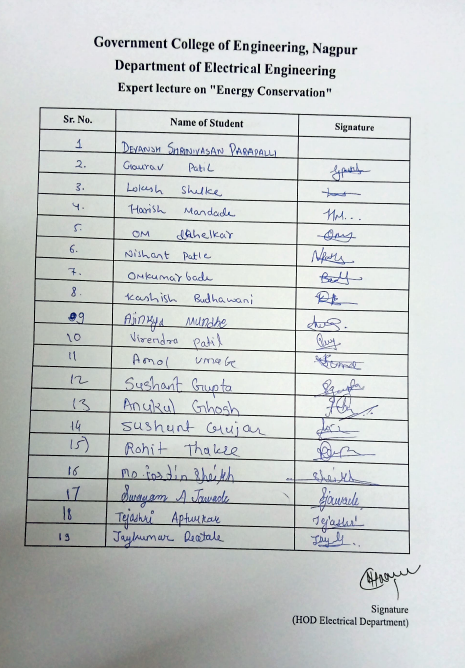 Government College of Engineering, Nagpur
Department of Electrical Engineering
Expert lecture on "Energy Conservation"
Sr. No. Name of Student Signature
1 DEVANSH SHRINIVASAN PARAPALLI
2. Gaurav Patil
3. Lokesh Shelke
4. Harish Mandade HM...
5. OM
6. Nishant Patle
7. Omkumar bade
8. Kashish Budhawani
9 Ajinkya Mundhe
10 Virendra Patil
11 Amol Umale
12 Sushant Gupta
13 Anukul Ghosh
14 Sushant Gujar
15) Rohit Thakre
16 Sheikh Sheikh
17 Swayam A Jawade Sjawade
18 Tejashri Apturkar Tejashri
19 Jaykumar
Signature
(HOD Electrical Department)